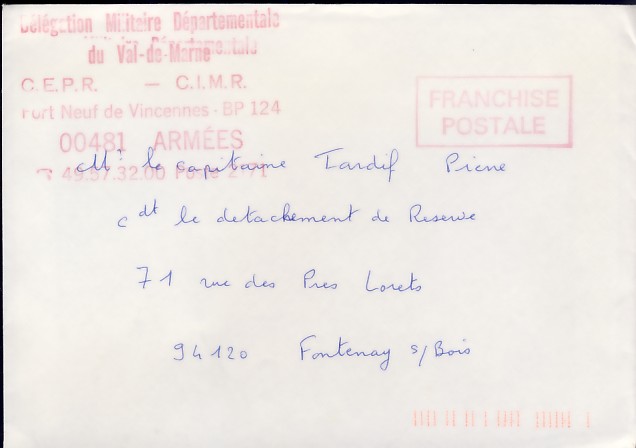 Délégation Militaire Départementale
du Val-de-Marne
C.E.P.R. — C.I.M.R.
Fort Neuf de Vincennes - BP 124
00481 ARMÉES
49.57.32.00
FRANCHISE
POSTALE
Mr le capitaine Tardif Pierre
cdt le detachement de Reserve
71 rue des Pres Lorets
94120 Fontenay s/Bois